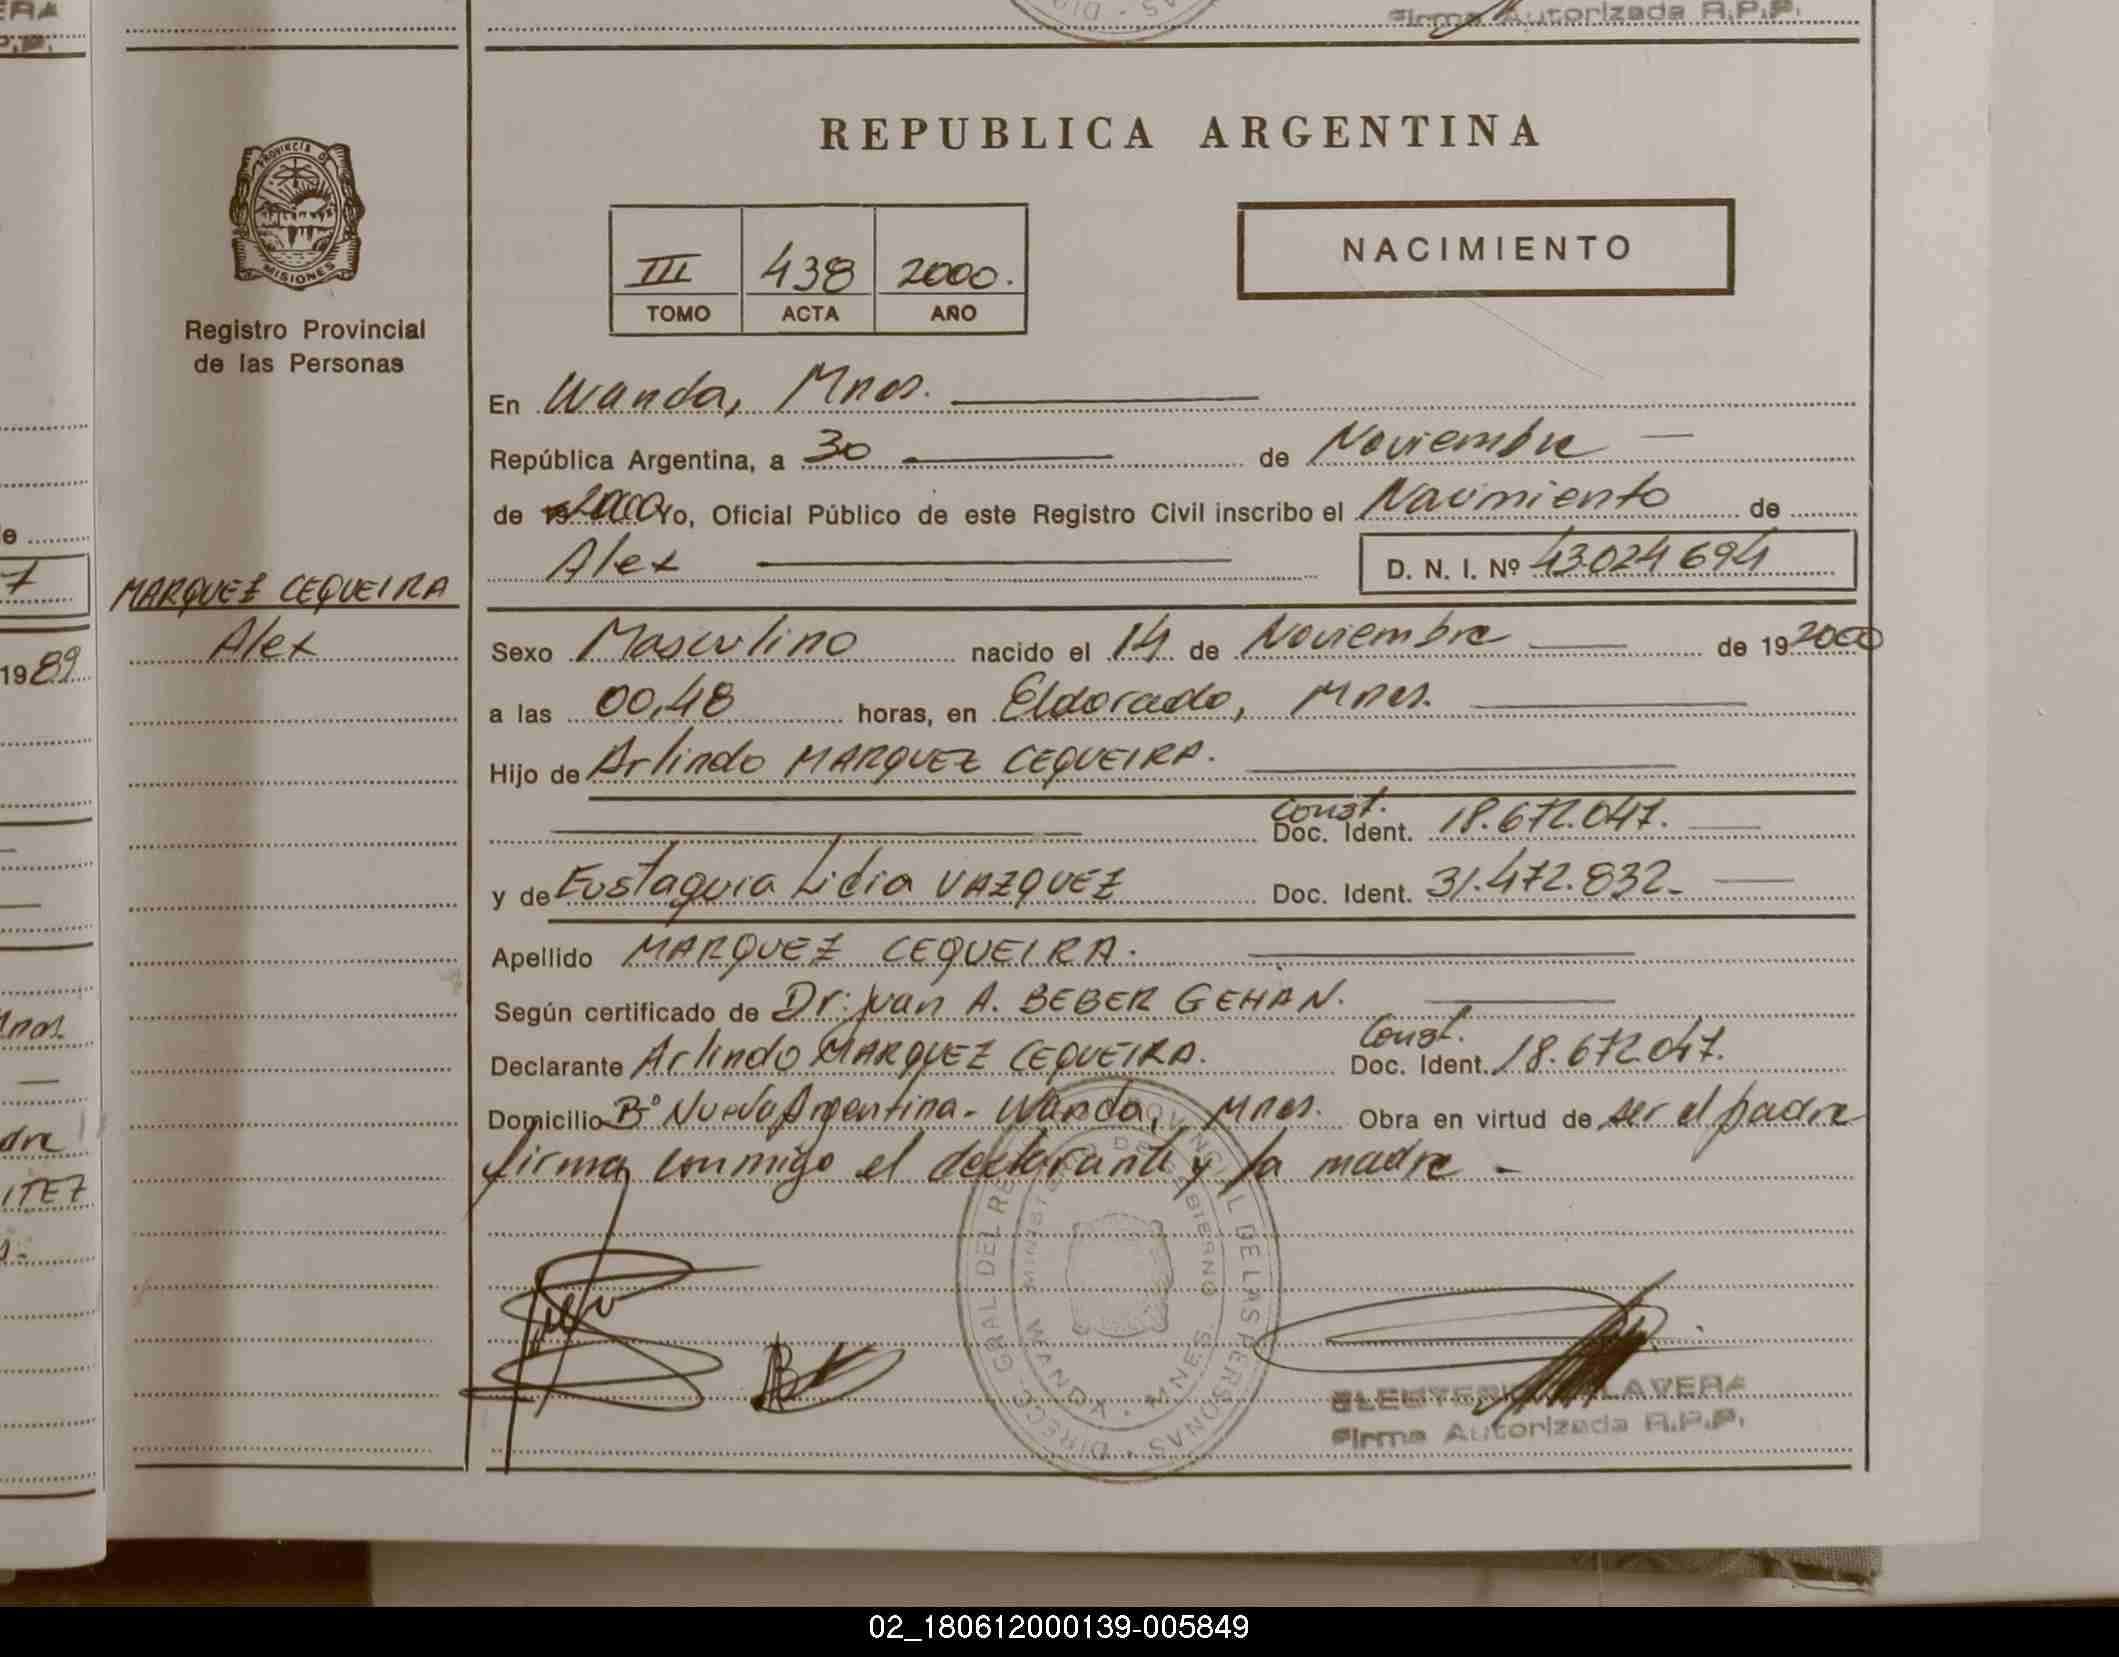 Firma Autorizada R.P.P.
PROVINCIA DE
MISIONES
Registro Provincial
de las Personas
REPUBLICA ARGENTINA
NACIMIENTO
III 438 2000.
TOMO ACTA AÑO
En Wanda, Mnes.
República Argentina, a 30 de Noviembre
de 2000 Yo, Oficial Público de este Registro Civil inscribo el Nacimiento de
Alex D. N. I. Nº 43.024.694
MARQUEZ CEQUEIRA
Alex
Sexo Masculino nacido el 14 de Noviembre de 19 2000
a las 00,48 horas, en Eldorado, Mnes.
Hijo de Arlindo MARQUEZ CEQUEIRA.
Const.
Doc. Ident. 18.672.047.
y de Eustaquia Lidia VAZQUEZ Doc. Ident. 31.472.832.
Apellido MARQUEZ CEQUEIRA.
Según certificado de Dr: Juan A. BEBER GEHAN.
Const.
Declarante Arlindo MARQUEZ CEQUEIRA. Doc. Ident. 18.672.047.
Domicilio Bº Nueva Argentina - Wanda, Mnes. Obra en virtud de ser el padre
firma conmigo el declarante y la madre -
DIREC. GRAL DEL REG. PROVINCIAL DE LAS PERSONAS
MINISTERIO DE GOBIERNO
WANDA - MNES.
ELEUTERIO TALAVERA
Firma Autorizada R.P.P.
1989
02_180612000139-005849